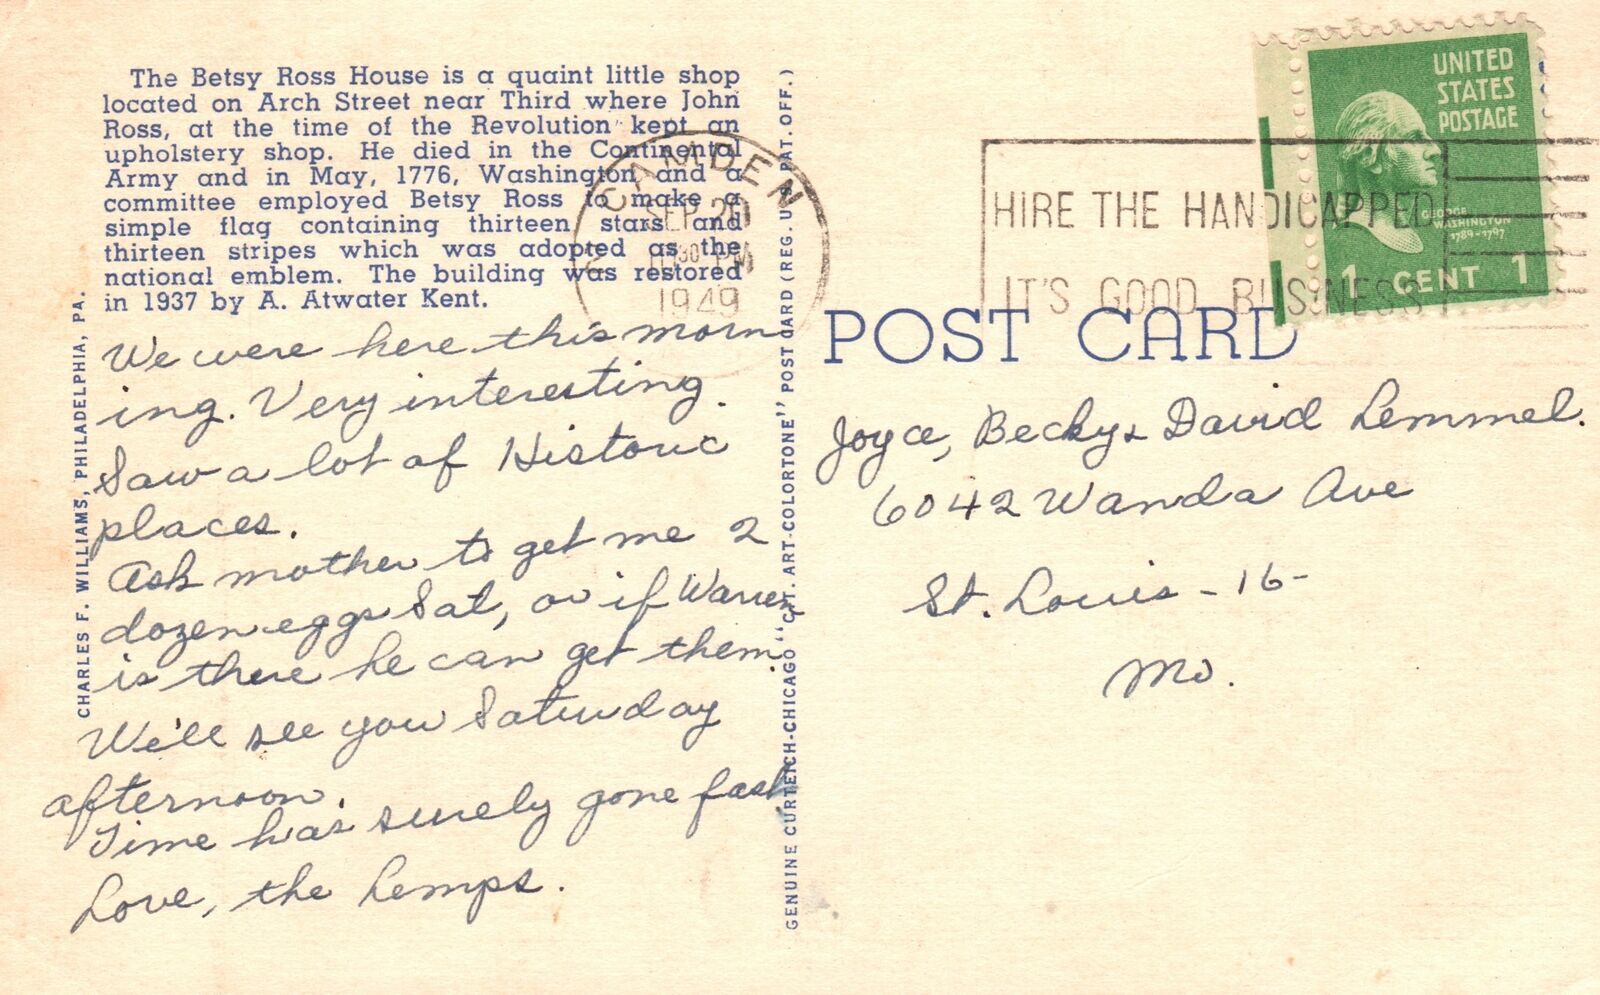 The Betsy Ross House is a quaint little shop
located on Arch Street near Third where John
Ross, at the time of the Revolution kept an
upholstery shop. He died in the Continental
Army and in May, 1776, Washington and a
committee employed Betsy Ross to make a
simple flag containing thirteen stars and
thirteen stripes which was adopted as the
national emblem. The building was restored
in 1937 by A. Atwater Kent.
We were here this morn
ing. Very interesting.
Saw a lot of Historic
places.
Ask mother to get me 2
dozen eggs Sat, or if Warren
is there he can get them.
We'll see you Saturday
afternoon.
Time has surely gone fast
Love, the Lemps.
CHARLES F. WILLIAMS, PHILADELPHIA, PA.
GENUINE CURTEICH-CHICAGO "C.T. ART-COLORTONE" POST CARD (REG. U.S. PAT. OFF.)
CAMDEN
SEP 20
30 PM
1949
HIRE THE HANDICAPPED
IT'S GOOD BUSINESS
UNITED
STATES
POSTAGE
GEORGE
WASHINGTON
1789-1797
1 CENT 1
POST CARD
Joyce, Becky & David Lemmel.
6042 Wanda Ave
St. Louis - 16 -
Mo.